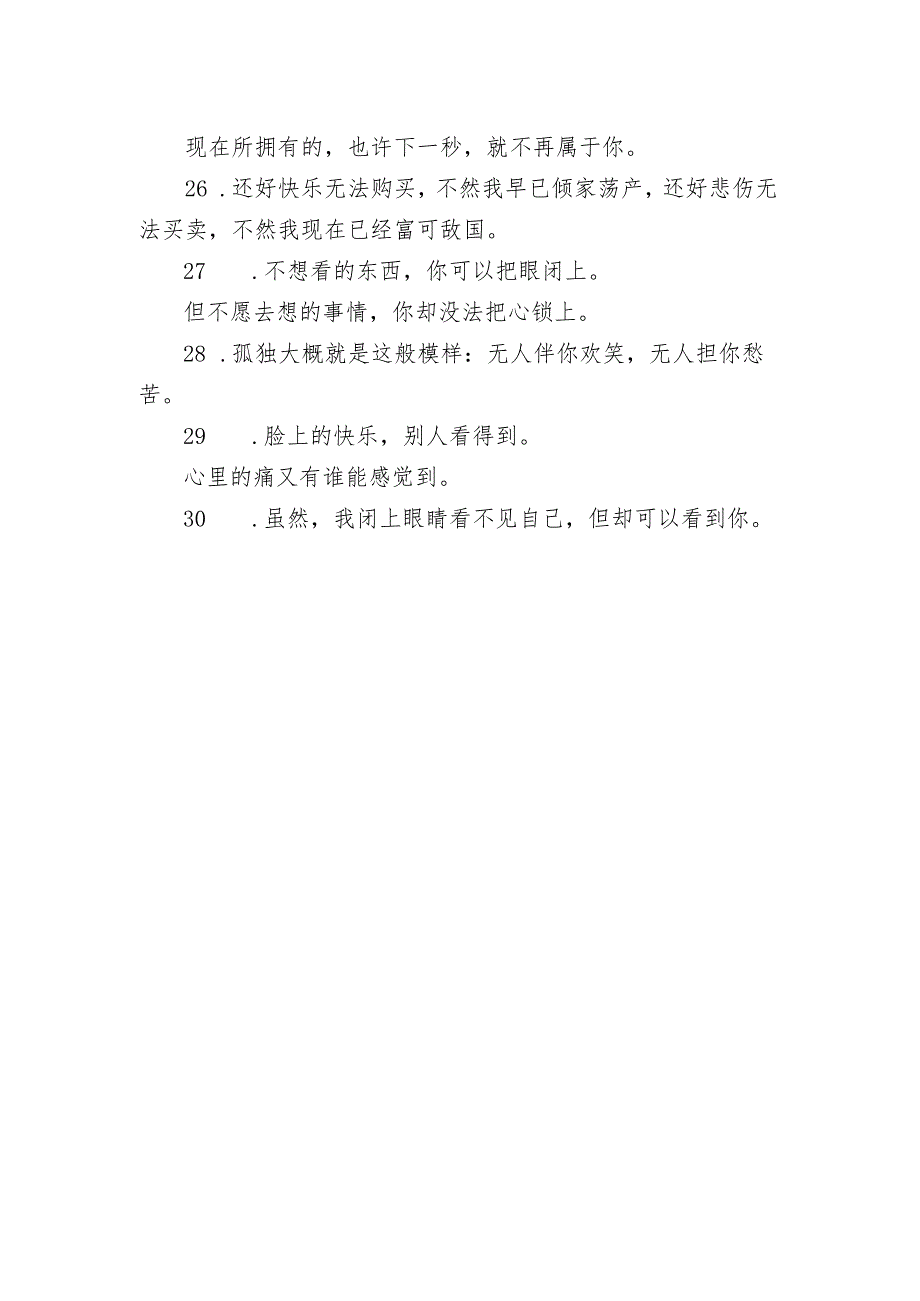 现在所拥有的，也许下一秒，就不再属于你。
26 .还好快乐无法购买，不然我早已倾家荡产，还好悲伤无
法买卖，不然我现在已经富可敌国。
27 .不想看的东西，你可以把眼闭上。
但不愿去想的事情，你却没法把心锁上。
28 .孤独大概就是这般模样：无人伴你欢笑，无人担你愁
苦。
29 .脸上的快乐，别人看得到。
心里的痛又有谁能感觉到。
30 .虽然，我闭上眼睛看不见自己，但却可以看到你。